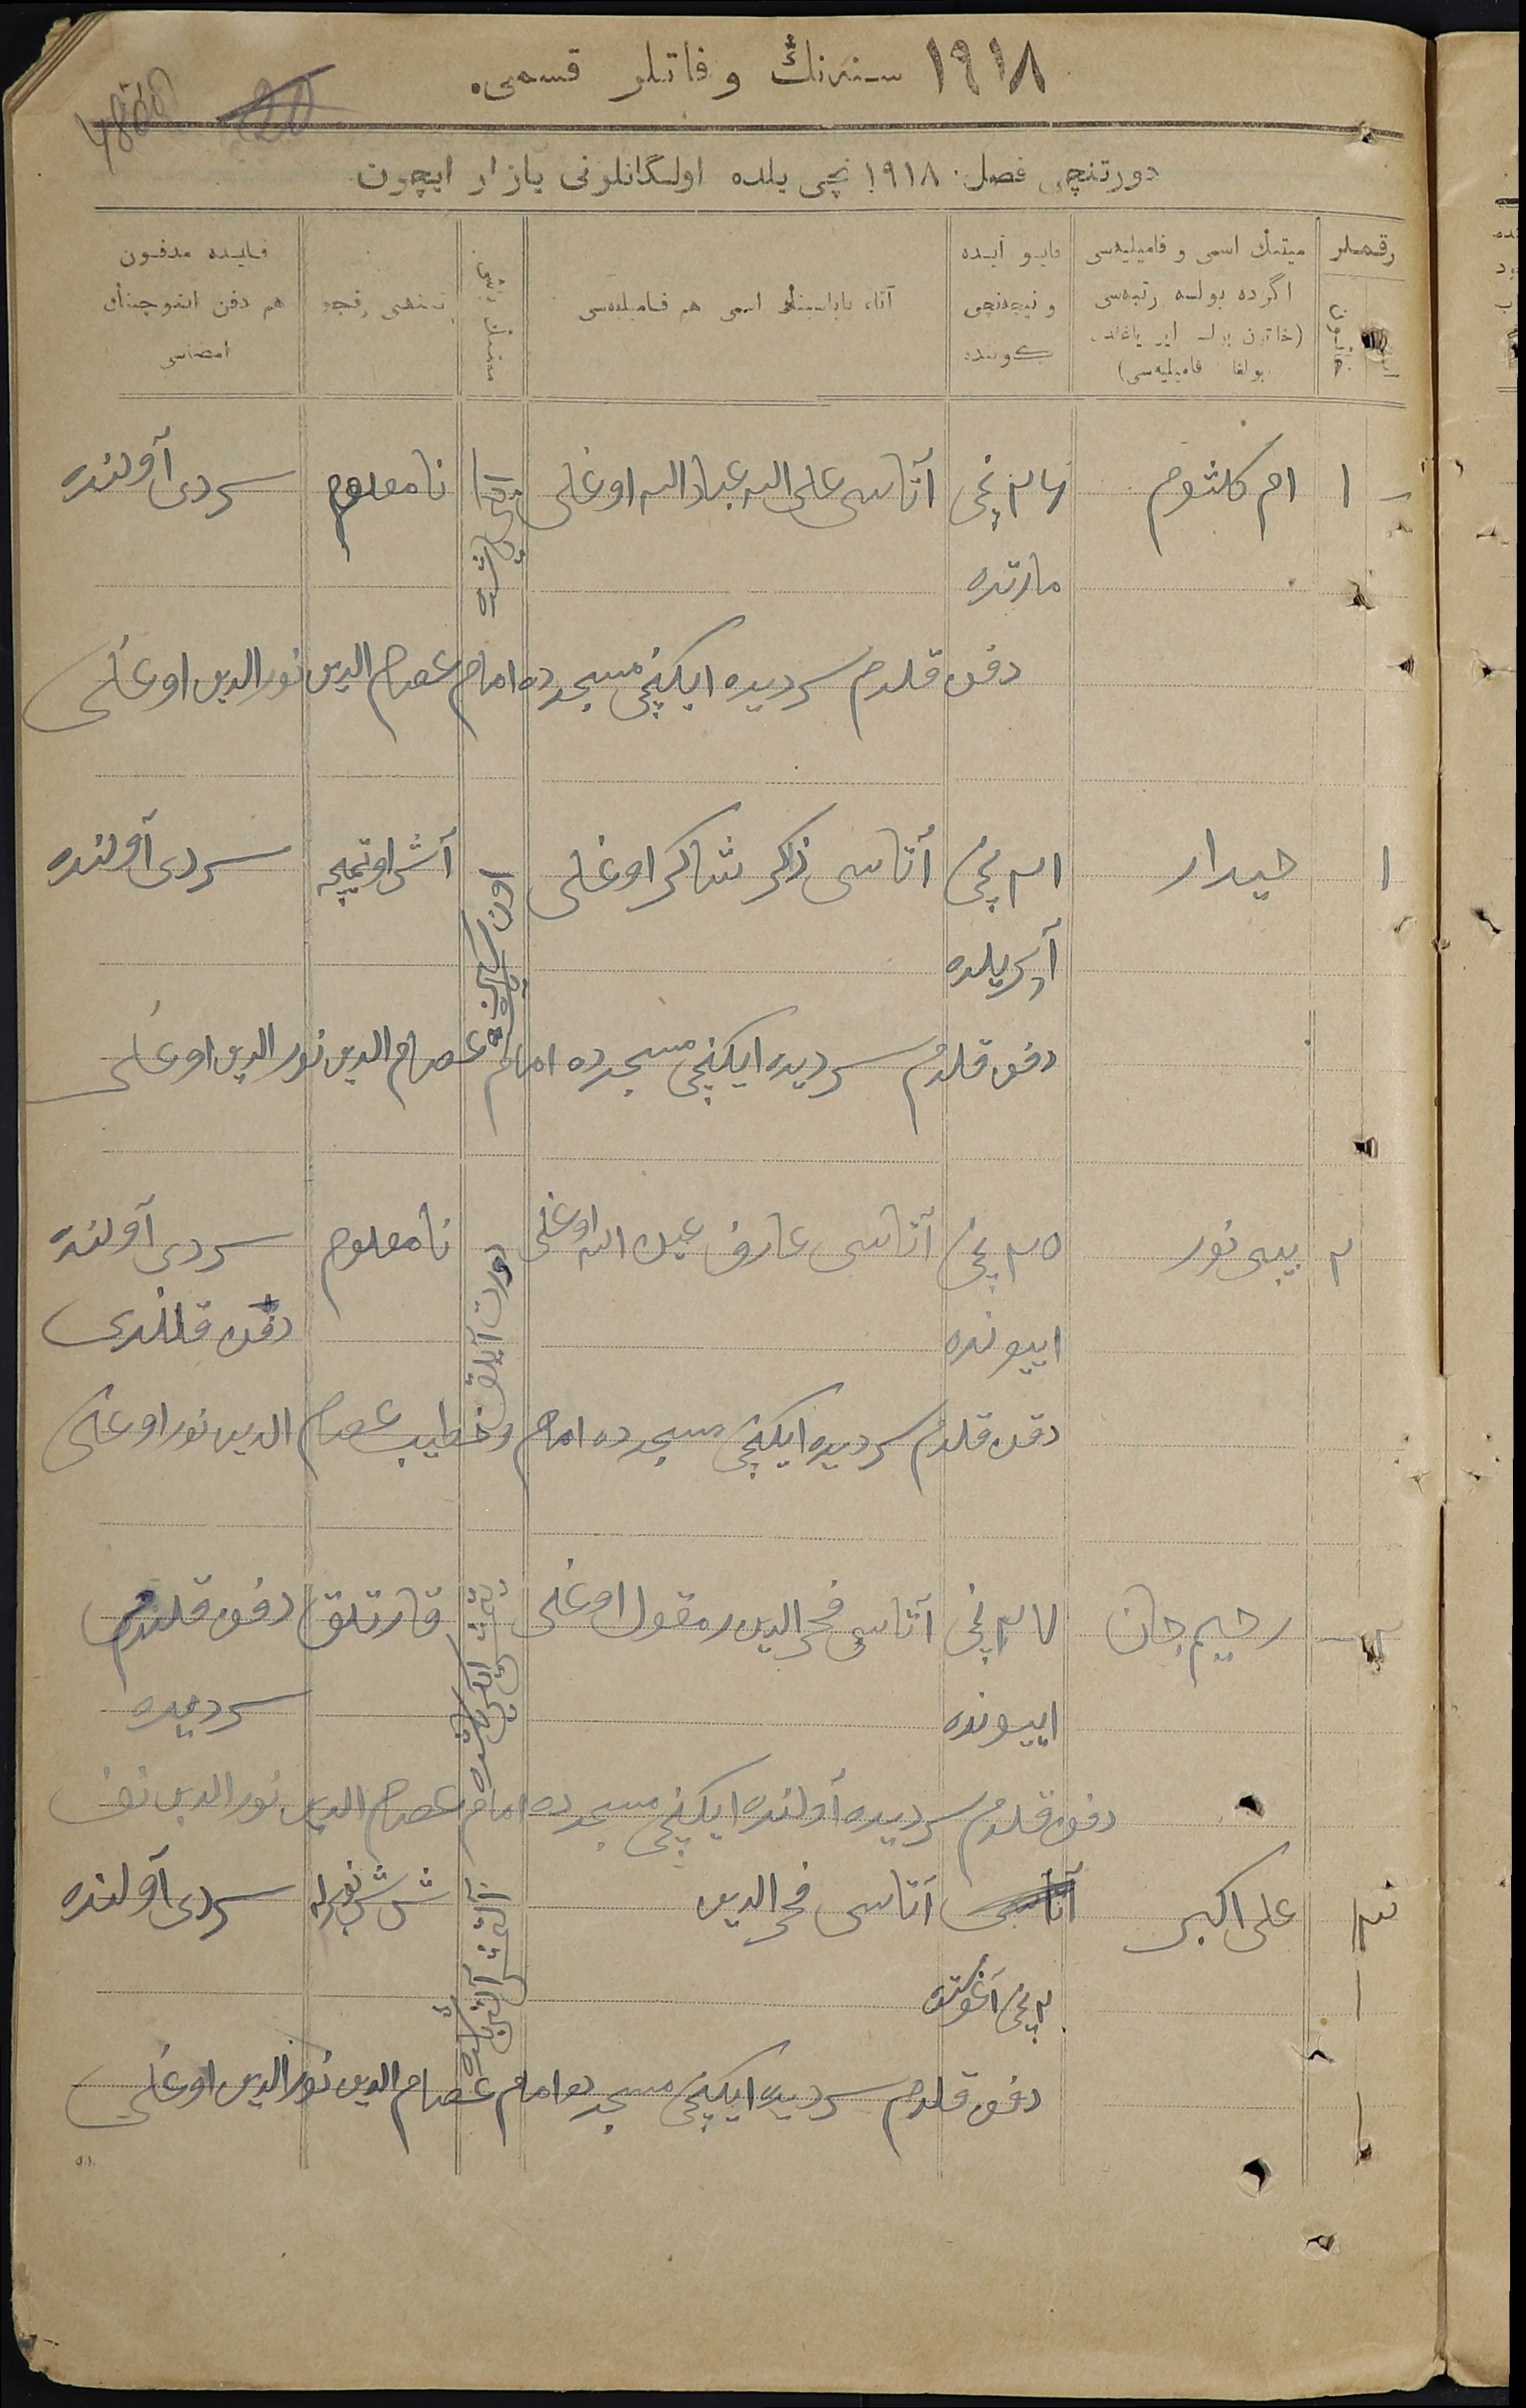 ١٩١٨ سنه‌نڭ وفاتلر قسمی.
دورتنچی فصل. ١٩١٨ نچی یلده اولگانلرنی یازار ایچون
رقملر
میتنڭ اسمی و فامیلیه‌سی اگرده بولسه رتبه‌سی (خاتون بولسه ایر یاغندن بولغان فامیلیه‌سی)
قایو آیده و نیچه‌نچی کوننده
آتا، باباسینڭ اسمی هم فامیلیه‌سی
قایده مدفون هم دفن ایتوچینڭ امضاسی
١ ام کلثوم
٢٦ نچی آتاسی علی الله عبادالله اوغلی
نامعلوم سردی آولنده
مارتده
دفن قلدم سردیده ایکنچی مسجدده امام عصام الدین نورالدین اوغلی
١ حیدار
٢١ نچی آتاسی ذاکر شاکر اوغلی
سردی آولنده
آپریلده
دفن قلدم سردیده ایکنچی مسجدده امام عصام الدین نورالدین اوغلی
٢ بیبی نور
٢٥ نچی آتاسی عارف عبدالله اوغلی
دورت آیلق
نامعلوم سردی آولنده
اییونده
دفن قلندی
دفن قلدم سردیده ایکنچی مسجدده امام و خطیب عصام الدین نور اوغلی
٢ رحیم جان
٢٧ نچی آتاسی فخرالدین اوغلی
قارتلق دفن قلندم
اییونده
سردیده
دفن قلدم سردیده آولنده ایکنچی مسجدده امام عصام الدین نورالدین نف
٣ علی اکبر
آتاسی فخرالدین
سردی آولنده
٢ نچی آغوستده
دفن قلدم سردیده ایکنچی مسجدده امام عصام الدین نورالدین اوغلی